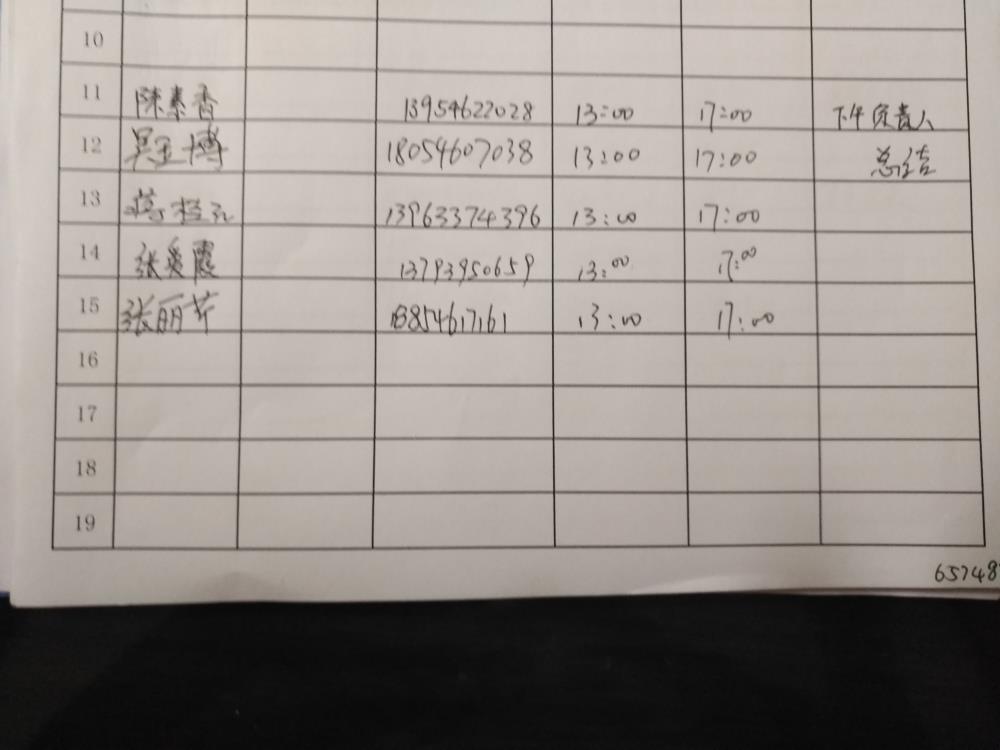 10
11 陈素香 13954622028 13:00 17:00 下午负责人
12 吴玉博 18054607038 13:00 17:00 总结
13 13963374396 13:00 17:00
14 张爱霞 13793950659 13:00 17:00
15 张丽芹 13854617161 13:00 17:00
16
17
18
19
65748